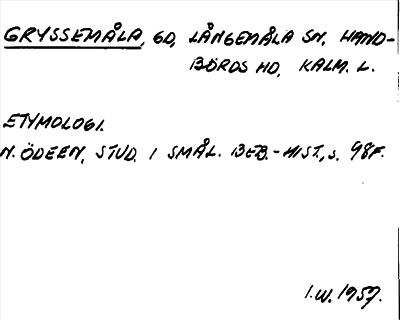 GRYSSEMÅLA, GD, LÅNGEMÅLA SN, HAND-
BÖRDS HD, KALM. L.
ETYMOLOGI.
N. ÖDEEN, STUD. I SMÅL. BEB.-HIST., S. 98F.
I.W. 1957.